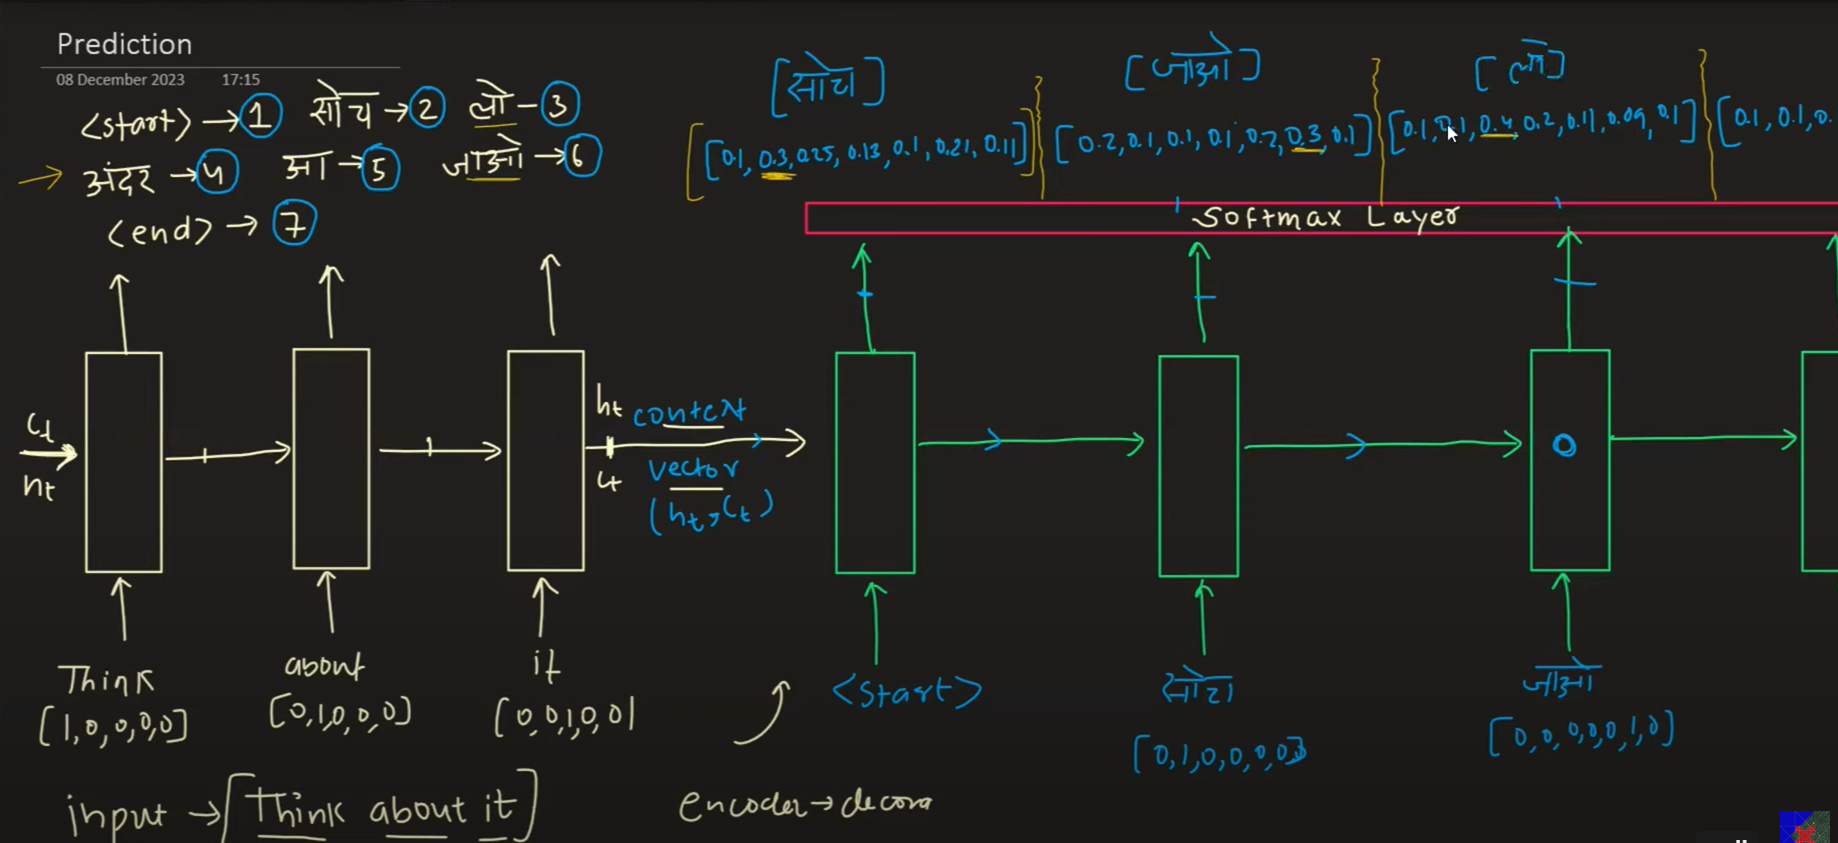 Prediction
08 December 2023 17:15
<start> → 1 सोच → 2 लो - 3
अंदर → 4 आ → 5 जाओ → 6
<end> → 7
[सोच] [जाओ] [लो]
[0.1, 0.3, 0.25, 0.13, 0.1, 0.21, 0.11] [0.2, 0.1, 0.1, 0.1, 0.2, 0.3, 0.1] [0.1, 0.1, 0.4, 0.2, 0.11, 0.09, 0.1] [0.1, 0.1, 0.
Softmax Layer
ht context
Ct
ht
Ct vector
(ht, Ct)
Think about it
[1,0,0,0,0] [0,1,0,0,0] [0,0,1,0,0]
<Start> सोच जाओ
[0,1,0,0,0,0,0] [0,0,0,0,0,1,0]
input → [Think about it]
encoder →